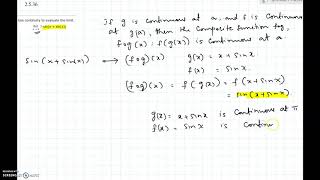 2.5.36
Use continuity to evaluate the limit.
If g is continuous at a, and f is Continuous
at g(a), then the Composite function fog,
fog(x) = f(g(x)) is Continuous at a.
sin(x+sinx) ⟷ (fog)(x) g(x) = x + sinx
f(x) = sinx
(fog)(x) = f(g(x)) = f(x+sinx)
= sin(x+sinx)
g(x) = x+sinx is Continuous at π
f(x) = sinx is Continu